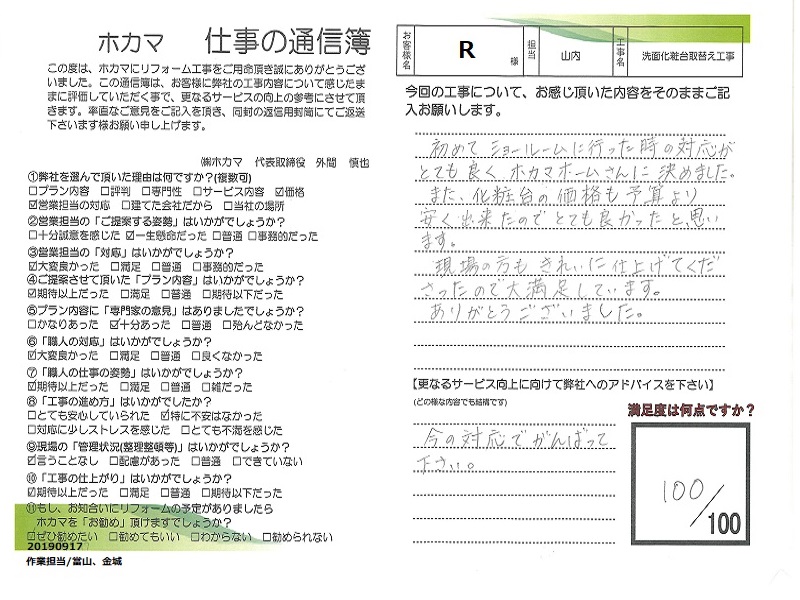 ホカマ 仕事の通信簿
この度は、ホカマにリフォーム工事をご用命頂き誠にありがとうござ
いました。この通信簿は、お客様に弊社の工事内容について感じたま
まに評価していただく事で、更なるサービスの向上の参考にさせて頂
きます。率直なご意見をご記入を頂き、同封の返信用封筒にてご返送
下さいます様お願い申し上げます。
㈱ホカマ 代表取締役 外間 慎也
①弊社を選んで頂いた理由は何ですか?(複数可)
□プラン内容 □評判 □専門性 □サービス内容 ☑価格
☑営業担当の対応 □建てた会社だから □当社の場所
②営業担当の「ご提案する姿勢」はいかがでしょうか?
□十分誠意を感じた ☑一生懸命だった □普通 □事務的だった
③営業担当の「対応」はいかがでしょうか?
☑大変良かった □満足 □普通 □事務的だった
④ご提案させて頂いた「プラン内容」はいかがでしょうか?
☑期待以上だった □満足 □普通 □期待以下だった
⑤プラン内容に「専門家の意見」はありましたでしょうか?
□かなりあった ☑十分あった □普通 □殆んどなかった
⑥「職人の対応」はいかがでしょうか?
☑大変良かった □満足 □普通 □良くなかった
⑦「職人の仕事の姿勢」はいかがでしょうか?
☑期待以上だった □満足 □普通 □雑だった
⑧「工事の進め方」はいかがでしたでしょうか?
□とても安心していられた ☑特に不安はなかった
□対応に少しストレスを感じた □とても不満を感じた
⑨現場の「管理状況(整理整頓等)」はいかがでしょうか?
☑言うことなし □配慮があった □普通 □できていない
⑩「工事の仕上がり」はいかがでしょうか?
☑期待以上だった □満足 □普通 □期待以下だった
⑪もし、お知合いにリフォームの予定がありましたら
ホカマを「お勧め」頂けますでしょうか?
☑ぜひ勧めたい □勧めてもいい □わからない □勧められない
20190917
作業担当/當山、金城
お客様名 R 様 担当 山内 工事名 洗面化粧台取替え工事
今回の工事について、お感じ頂いた内容をそのままご記
入お願いします。
初めて ショールームに行った時の対応が
とても良く ホカマホームさんに 決めました。
また、化粧台の価格も予算より
安く出来たのでとても良かったと思い
ます。
現場の方も きれいに仕上げてくだ
さったので大満足しています。
ありがとうございました。
【更なるサービス向上に向けて弊社へのアドバイスを下さい】
(どの様な内容でも結構です)
今の対応でがんばって
下さい。
満足度は何点ですか?
100/100